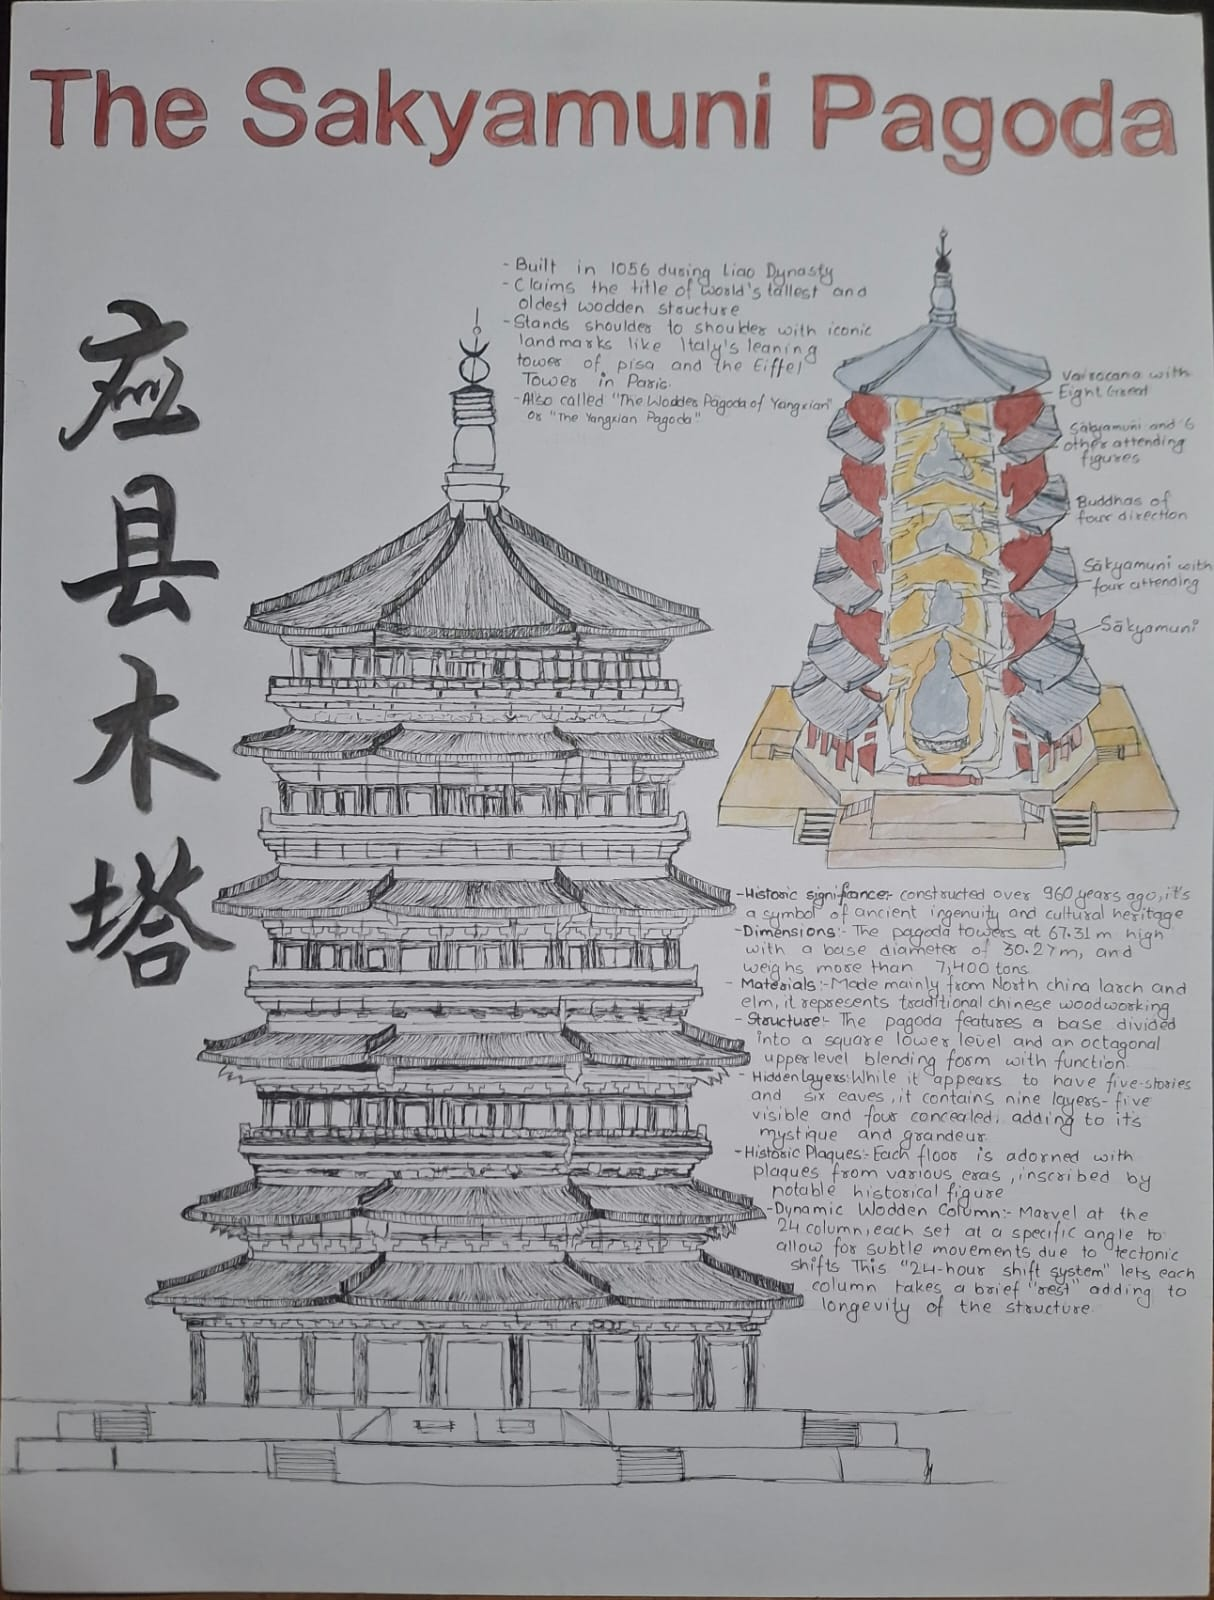 The Sakyamuni Pagoda
应县木塔
- Built in 1056 during Liao Dynasty
- Claims the title of world's tallest and
oldest wodden structure
- Stands shoulder to shoulder with iconic
landmarks like Italy's leaning
tower of pisa and the Eiffel
Tower in Paris.
- Also called "The Wodder Pagoda of Yangxian"
or "The Yangxian Pagoda"
Vairocana with
Eight Great
Sākyamuni and 6
other attending
figures
Buddhas of
four direction
Sākyamuni with
four attending
Sākyamuni
- Historic significance:- constructed over 960 years ago, it's
a symbol of ancient ingenuity and cultural heritage
- Dimensions:- The pagoda towers at 67.31 m high
with a base diameter of 30.27m, and
weighs more than 7,400 tons
- Materials:- Made mainly from North china larch and
elm, it represents traditional chinese woodworking
- Structure:- The pagoda features a base divided
into a square lower level and an octagonal
upper level blending form with function.
- Hidden layers: While it appears to have five-stories
and six eaves, it contains nine layers- five
visible and four concealed, adding to it's
mystique and grandeur
- Historic Plaques:- Each floor is adorned with
plaques from various eras, inscribed by
notable historical figure
- Dynamic Wodden Column:- Marvel at the
24 column, each set at a specific angle to
allow for subtle movements due to tectonic
shifts This "24-hour shift system" lets each
column takes a brief "rest" adding to
longevity of the structure.